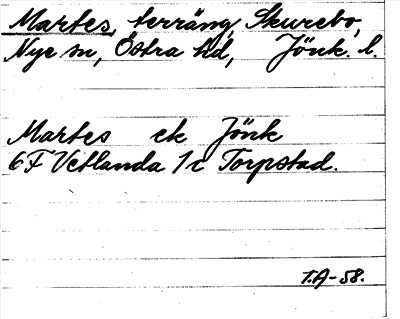 Martes, terräng, Skurebo,
Nye sn, Östra hd, Jönk. l.
Martes ek Jönk
6F Vetlanda 1c Torpstad.
T.A-58.